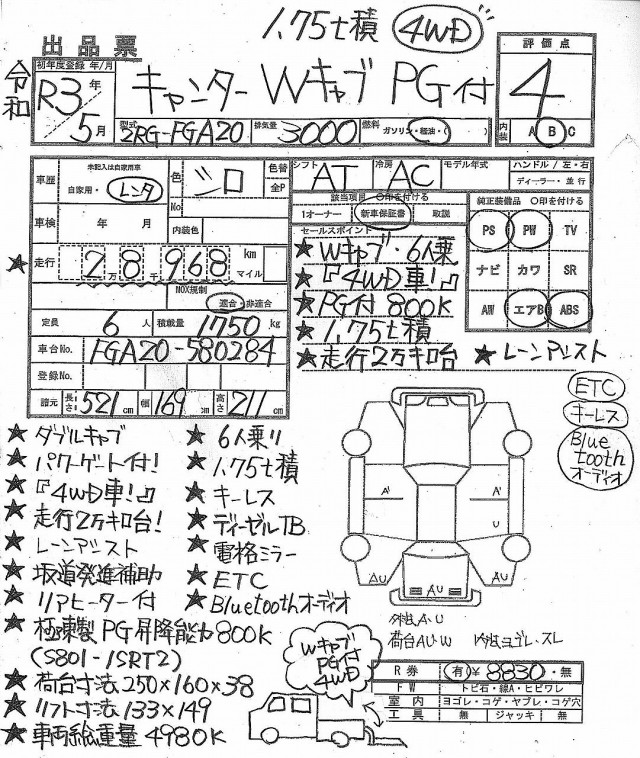 1.75t積 4WD
出品票
令和
初年度登録 年/月
R3年/5月
キャンター Wキャブ PG付
評価点
4
内装 A B C
型式 2RG-FGA20 排気量 3000 燃料 ガソリン・軽油・( )
車歴 未記入は自家用車 自家用・レンタ
色 シロ 色替 全P
No
車検 年 月 内装色
★ 走行 2万8千968 km マイル
NOX規制 適合・非適合
定員 6人 積載量 1750kg
車台No. FGA20-580284
登録No.
諸元 長さ 521cm 幅 169cm 高さ 211cm
シフト AT 冷房 AC モデル年式 ハンドル/左・右
ディーラー・並行
該当項目 〇印を付ける
1オーナー 新車保証書 取説
セールスポイント
★Wキャブ・6人乗
★『4WD車!』
★PG付 800K
★1.75t積
★走行2万キロ台 ★レーンアシスト
純正装備品 〇印を付ける
PS PW TV
ナビ カワ SR
AW エアB ABS
ETC
キーレス
Bluetoothオーディオ
★ダブルキャブ
★パワーゲート付!
★『4WD車!』
★走行2万キロ台!
★レーンアシスト
★坂道発進補助
★リアヒーター付
★極東製PG昇降能力800K
(S801-1SRT2)
★荷台寸法250×160×38
★リフト寸法133×149
★車両総重量4980K
★6人乗り
★1.75t積
★キーレス
★ディーゼルTB
★電格ミラー
★ETC
★Bluetoothオーディオ
A A
U
AU AU AU
外板A・U
荷台AU・W 内装ヨゴレ・スレ
Wキャブ
PG付
4WD
R券 有 ¥8830・無
FW トビ石・線A・ヒビワレ
室内 ヨゴレ・コゲ・ヤブレ・コゲ穴
工具 無 ジャッキ 無